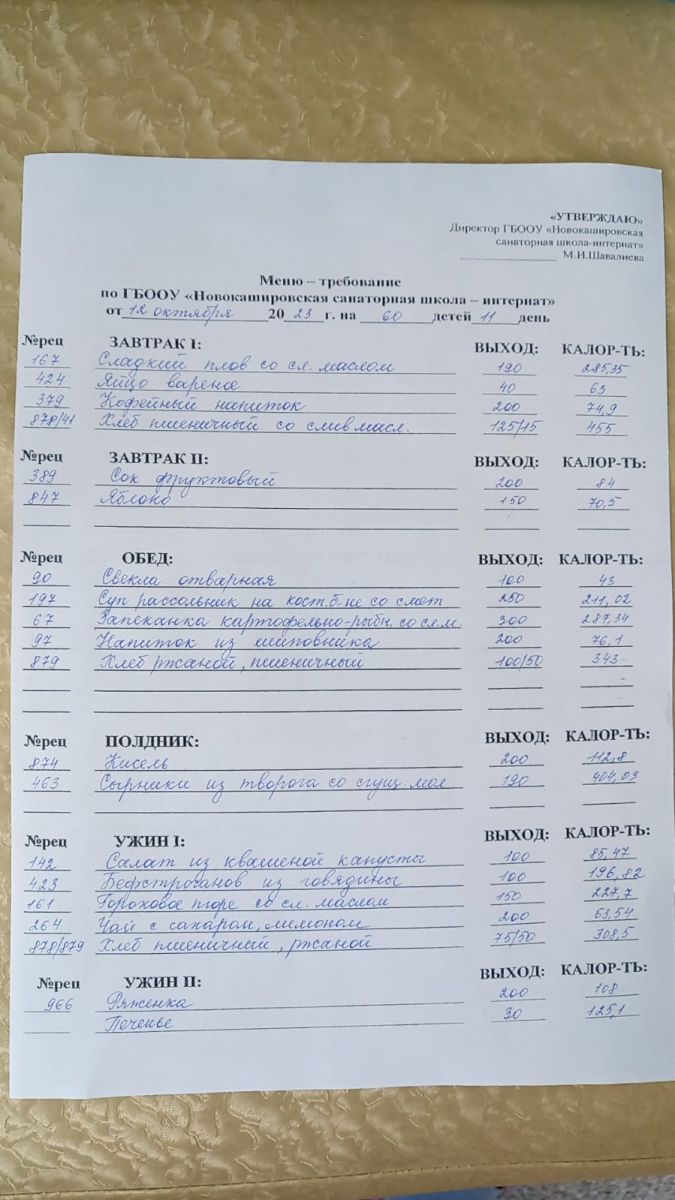 «УТВЕРЖДАЮ»
Директор ГБООУ «Новокашировская
санаторная школа-интернат»
М.И.Шавалиева
Меню – требование
по ГБООУ «Новокашировская санаторная школа – интернат»
от 12 октября 2023 г. на 60 детей 11 день
№рец ЗАВТРАК I: ВЫХОД: КАЛОР-ТЬ:
167 Сладкий плов со сл. маслом 190 285,35
424 Яйцо вареное 40 63
379 Кофейный напиток 200 74,9
878/41 Хлеб пшеничный со слив масл. 125/15 455
№рец ЗАВТРАК II: ВЫХОД: КАЛОР-ТЬ:
389 Сок фруктовый 200 84
847 Яблоко 150 70,5
№рец ОБЕД: ВЫХОД: КАЛОР-ТЬ:
90 Свекла отварная 100 43
197 Суп рассольник на кост. б-не со смет 250 211,02
67 Запеканка картофельно-рыбн. со сл.м. 300 287,34
97 Напиток из шиповника 200 76,1
879 Хлеб ржаной, пшеничный 100/50 343
№рец ПОЛДНИК: ВЫХОД: КАЛОР-ТЬ:
874 Кисель 200 112,8
463 Сырники из творога со сгущ. мол. 190 404,03
№рец УЖИН I: ВЫХОД: КАЛОР-ТЬ:
142 Салат из квашеной капусты 100 85,47
423 Бефстроганов из говядины 100 196,82
161 Гороховое пюре со сл. маслом 150 227,7
264 Чай с сахаром, лимоном 200 63,54
878/879 Хлеб пшеничный, ржаной 75/50 308,5
№рец УЖИН II: ВЫХОД: КАЛОР-ТЬ:
966 Ряженка 200 108
Печенье 30 125,1